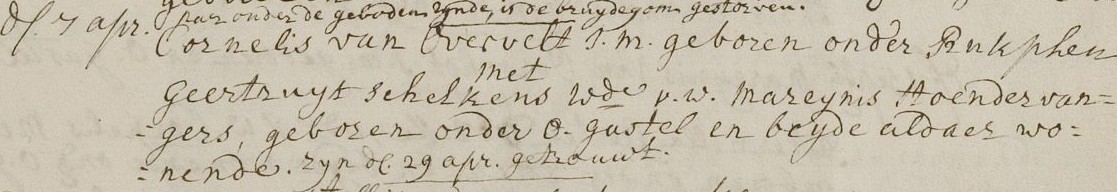 paar onder de geboden zynde, is de bruydegom gestorven.
dl. 7 apr. Cornelis van Overvelt J.m. geboren onder Rukphen
met
Geertruyt Schelkens wde v.w. Mareynis Hoendervan=
=gers, geboren onder O. gastel en beyde aldaer wo=
=nende. zyn dl. 29 apr. getrouwt.